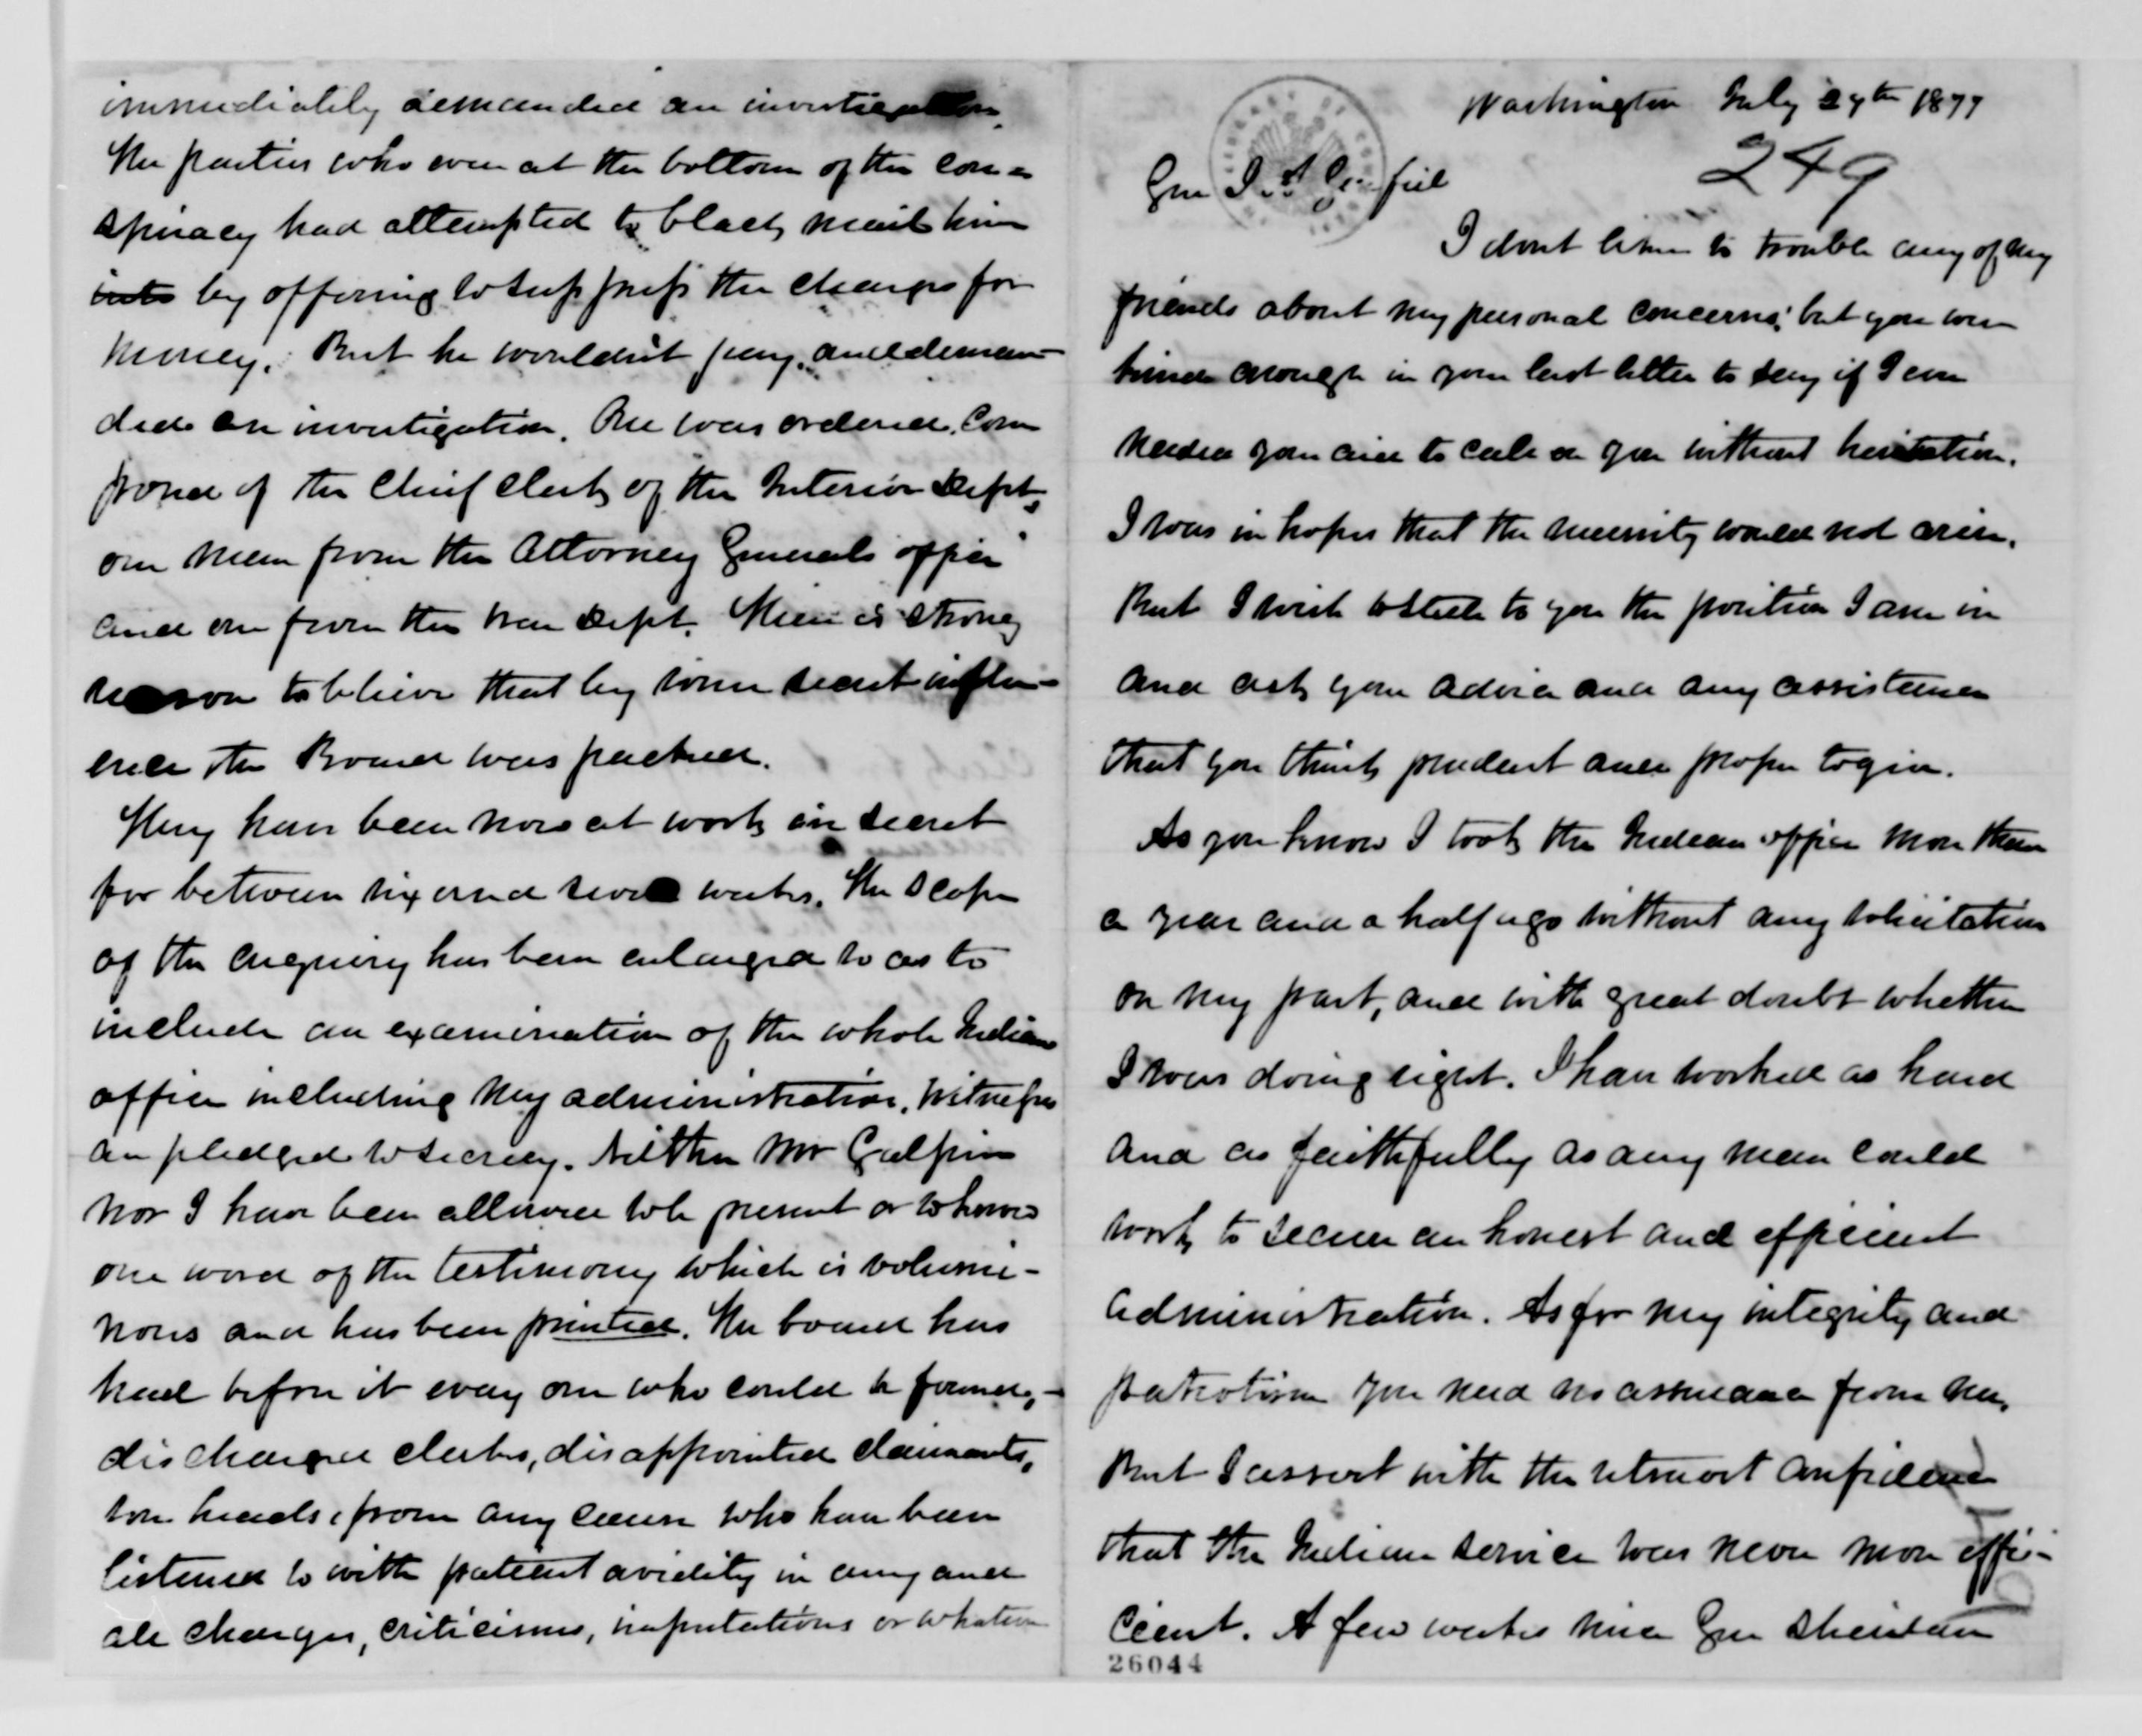 immediately demanded an investigation.
The parties who were at the bottom of the con=
spiracy had attempted to black mail him
into by offering to suppress the charges for
money. But he wouldnt pay. and deman-
ded an investigation. One was ordered. Com
posed of the Chief Clerk of the Interior Dept,
one man from the Attorney Generals office
and one from the War Dept. There is strong
reason to believe that by some secret influ-
ence the Board was packed.
They have been now at work in secret
for between six and seven weeks. The scope
of the enquiry has been enlarged so as to
include an examination of the whole Indian
office including my administration. Witnesses
are pledged to secrecy. Neither Mr Galpin
nor I have been allowed to be present or to know
one word of the testimony which is volumi-
nous and has been printed. The board has
had before it every one who could be found,-
discharged clerks, disappointed claimants,
sore heads from any cause who have been
listened to with patient avidity in any and
all charges, criticisms, imputations or whatever
Washington July 29th 1877
249
Gen J. A Garfield
I dont like to trouble any of my
friends about my personal concerns; but you were
kind enough in your last letter to say if I ever
needed your aid to call on you without hesitation.
I was in hopes that the necessity would not arise.
But I wish to state to you the position I am in
and ask your advice and any assistance
that you think prudent and proper to give.
As you know I took the Indian office more than
a year and a half ago without any solicitation
on my part, and with great doubt whether
I was doing right. I have worked as hard
and as faithfully as any man could
work to secure an honest and efficient
administration. As for my integrity and
patriotism you need no assurance from me.
But I assert with the utmost confidence
that the Indian service was never more effi-
cient. A few weeks since Gen Sheridan
26044